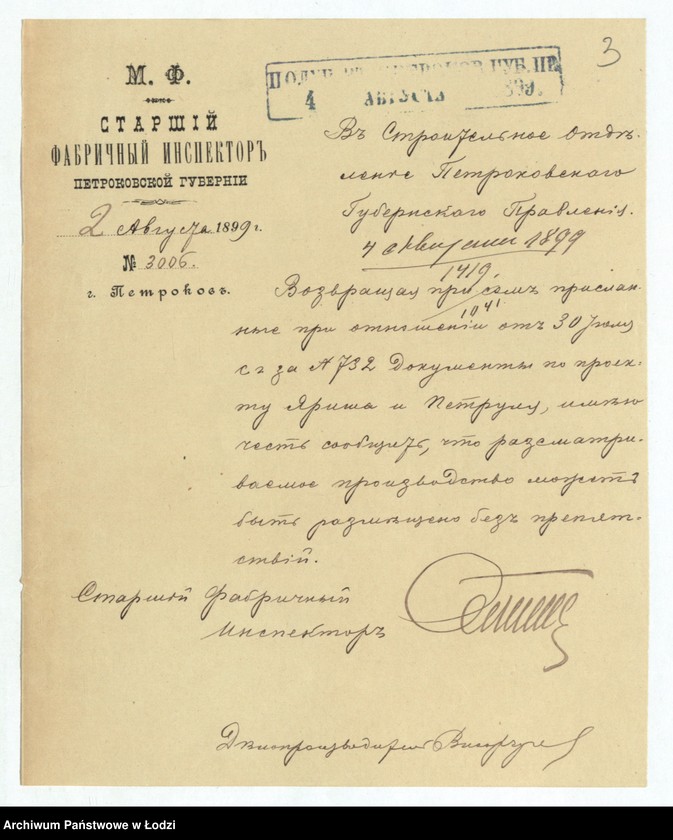 3
М. Ф.
СТАРШІЙ
ФАБРИЧНЫЙ ИНСПЕКТОРЪ
ПЕТРОКОВСКОЙ ГУБЕРНІИ
2 Августа 1899 г.
№ 3006.
г. Петроковъ.
4 АВГУСТА 899
Въ Строительное Отдѣ-
леніе Петроковскаго
Губернскаго Правленія.
4 1899
1419
1041
Возвращая при семъ прислан-
ные при отношеніи отъ 30 Іюля
с г за № 732 документы по проек-
ту Яриша и Петруля, имѣю
честь сообщить, что разсматри-
ваемое производство можетъ
быть размѣщено безъ препят-
ствій.
Старшій Фабричный
Инспекторъ
Дѣлопроизводитель
Archiwum Państwowe w Łodzi